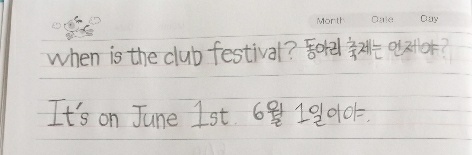 Month Date Day
when is the club festival? 동아리 축제는 언제야?
It's on June 1st. 6월 1일이야.